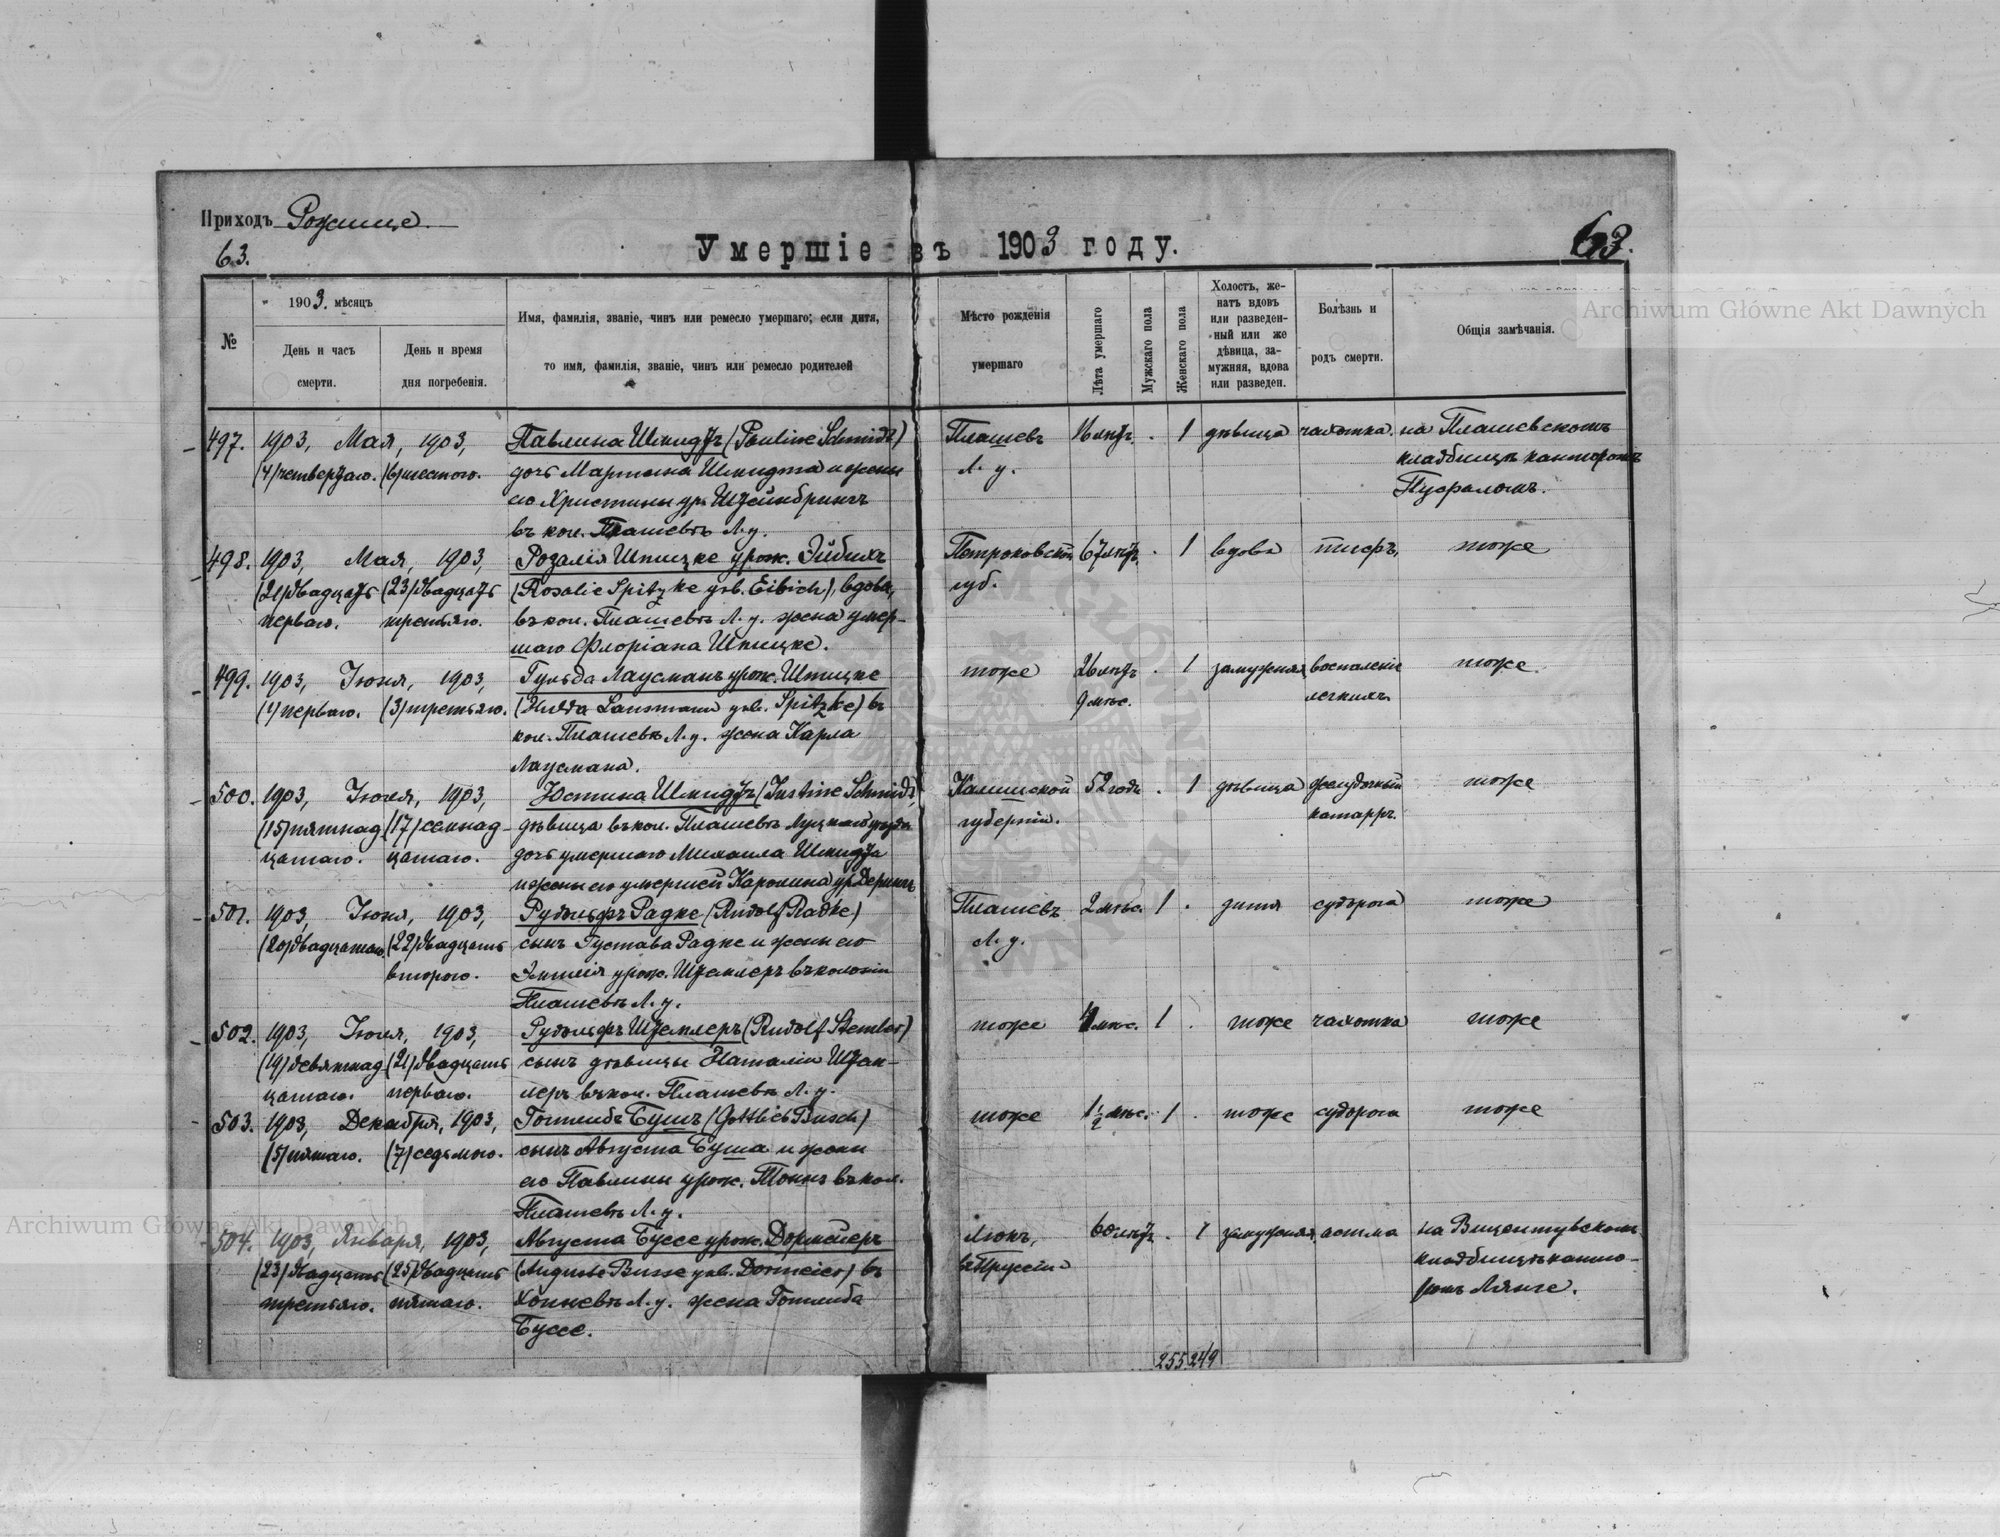 Приходъ Рожище
63.
Умершіе въ 1903 году.
63.
Archiwum Główne Akt Dawnych
№
1903. мѣсяцъ
День и часъ
смерти.
День и время
дня погребенія.
Имя, фамилія, званіе, чинъ или ремесло умершаго; если дитя,
то имя, фамилія, званіе, чинъ или ремесло родителей
Мѣсто рожденія
умершаго
Лѣта умершаго
Мужскаго пола
Женскаго пола
Холостъ, же-
натъ вдовъ
или разведен-
ный или же
дѣвица, за-
мужняя, вдова
или разведен.
Болѣзнь и
родъ смерти.
Общія замѣчанія.
497. 1903, Мая, 1903, Павлина Шмидтъ (Pauline Schmidt) Плашевъ 16 лѣтъ. . 1 дѣвица чахотка. на Плашевскомъ
(4) четвертаго. (6) шестого. дочь Мартина Шмидта и жены Л. у. кладбищѣ канторомъ
его Христины ур. Штейнбринкъ
въ кол. Плашевъ Л. у.
498. 1903, Мая, 1903, Розалія Шпицке урож. Эйбихъ Петроковской 67 лѣтъ. . 1 вдова тифъ, тоже
(21) двадцать (23) двадцать (Rosalie Spitzke geb. Eibich), вдова, губ.
перваго. третьяго. въ кол. Плашевъ Л. у. жена умер-
шаго Флоріана Шпицке.
499. 1903, Іюня, 1903, Гульда Лаусманъ урож. Шпицке тоже 26 лѣтъ . 1 замужняя воспаленіе тоже
(1) перваго. (3) третьяго. (Hulda Lausmann geb. Spitzke) въ 9 мѣс. легкихъ
кол. Плашевъ Л. у. жена Карла
Лаусмана.
500. 1903, Іюня, 1903, Юстина Шмидтъ (Justine Schmidt), Калишской 52 года . 1 дѣвица желудочный тоже
(15) пятнад (17) семнад- дѣвица въ кол. Плашевъ Луцкаго уѣзда губерніи. катарръ.
цатаго. цатаго. дочь умершаго Михаила Шмидта
и жены его умершей Каролина ур.
501. 1903, Іюня, 1903, Рудольфъ Радке (Rudolf Radke) Плашевъ 2 мѣс. 1 . дитя судорога тоже
(20) двадцатаго. (22) двадцать сынъ Густава Радке и жены его Л. у.
второго. Эмилія урож. Штемлеръ въ колоніи
Плашевъ Л. у.
502. 1903, Іюня, 1903, Рудольфъ Штемлеръ (Rudolf Stemler) тоже мѣс. 1 . тоже чахотка тоже
(19) девятнад (21) двадцать сынъ дѣвицы Наталіи Штем-
цатаго. перваго. леръ въ кол. Плашевъ Л. у.
503. 1903, Декабря, 1903, Готлибъ Бушъ (Gottlieb Busch) тоже 1 1/2 мѣс. 1 . тоже судорога тоже
(5) пятаго. (7) седьмого. сынъ Августа Буша и жены
его Павлины урож. въ кол.
Плашевъ Л. у.
Archiwum Główne Akt Dawnych
504. 1903, Января, 1903, Августа Буссе урож. Дормейеръ 60 лѣтъ . 1 замужняя астма на Вицентувскомъ
(23) двадцать (25) двадцать (Auguste Busse geb. Dormeier) въ въ Пруссіи кладбищѣ канто-
третьяго. пятаго. Л. у. жена Готлиба ромъ Лянге.
Буссе.
255 249